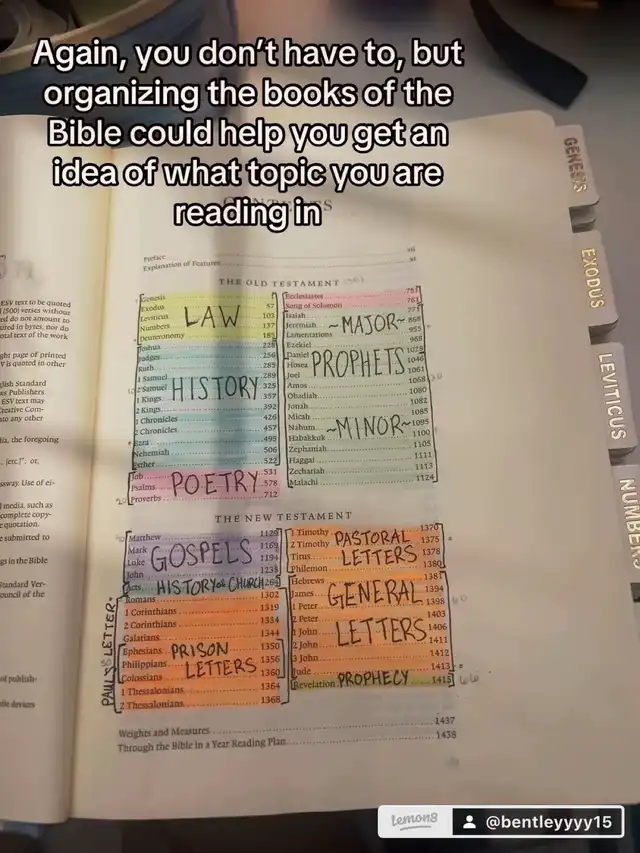 Again, you don't have to, but
organizing the books of the
Bible could help you get an
idea of what topic you are
reading in
ESV text to be quoted
(500) verses without
ed do not amount to
in bytes, nor do
text of the work
page of printed
is quoted in other
Standard
Publishers.
ESV text may
Creative Com-
to any other
the foregoing
Use of ei-
media, such as
complete copy-
quotation.
submitted to
in the Bible
Standard Ver-
of the
of publish-
devices
Preface
Explanation of Features
THE OLD TESTAMENT
Genesis
Exodus 57
Leviticus 103
Numbers 137
Deuteronomy 185
LAW
Joshua 228
Judges 256
Ruth 285
1 Samuel 289
2 Samuel 325
1 Kings 357
2 Kings 392
1 Chronicles 426
2 Chronicles 457
Ezra 495
Nehemiah 506
Esther 522
HISTORY
Job 531
Psalms 578
Proverbs 712
POETRY
Ecclesiastes 757
Song of Solomon 761
Isaiah 775
Jeremiah 868
Lamentations 955
Ezekiel 968
Daniel
~MAJOR~
PROPHETS
Hosea 1046
Joel 1061
Amos 1068
Obadiah 1080
Jonah 1082
Micah 1085
Nahum 1095
Habakkuk 1100
Zephaniah 1105
Haggai 1111
Zechariah 1113
Malachi 1124
~MINOR~
THE NEW TESTAMENT
Matthew 1129
Mark 1169
Luke 1194
John 1238
GOSPELS
Acts
HISTORY of CHURCH
Romans 1302
1 Corinthians 1319
2 Corinthians 1334
Galatians 1344
Ephesians 1350
Philippians 1356
Colossians 1360
1 Thessalonians 1364
2 Thessalonians 1368
PRISON
LETTERS
PAUL'S LETTER
1 Timothy 1370
2 Timothy 1375
Titus 1378
Philemon 1380
PASTORAL
LETTERS
Hebrews 1381
James 1394
1 Peter 1398
2 Peter 1403
1 John 1406
2 John 1411
3 John 1412
Jude 1413
GENERAL
LETTERS
Revelation 1415
PROPHECY
Weights and Measures 1437
Through the Bible in a Year Reading Plan 1438
GENESIS
EXODUS
LEVITICUS
NUMBERS
Lemon8
@bentleyyyy15